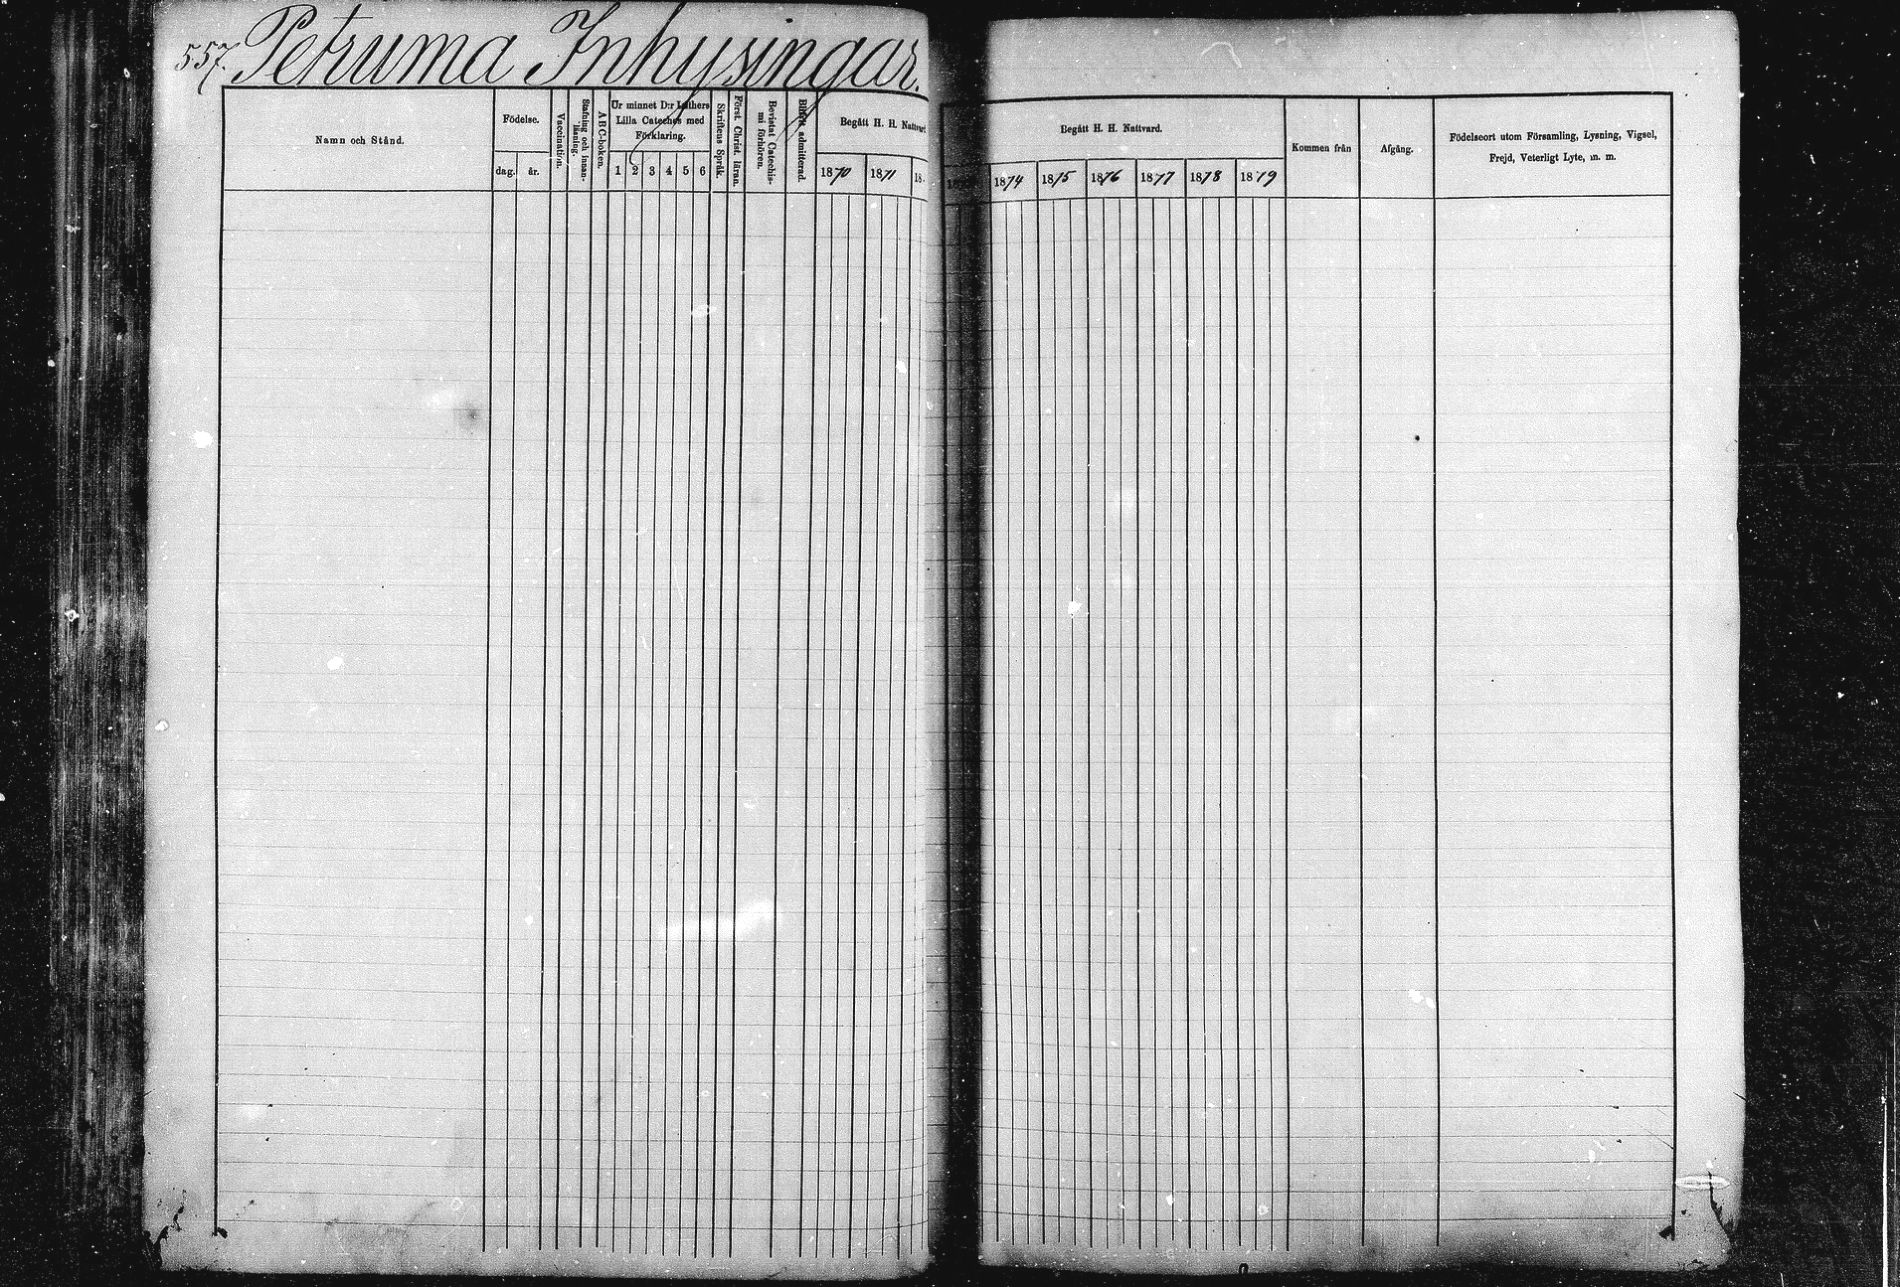 557. Petruma Inhysingar.
Namn och Stånd.
Födelse.
dag.
år.
Vaccination.
Stafning och innan-
läsning.
ABC-boken.
Ur minnet D:r Luthers
Lilla Cateches med
Förklaring.
1 2 3 4 5 6
Skriftens Språk.
Först. Christ. läran.
Bevistat Catechis-
mi förhören.
admitterad.
Begått H. H. Nattvard
1870 1871 18
Begått H. H. Nattvard.
1874 1875 1876 1877 1878 1879
Kommen från
Afgång.
Födelseort utom Församling, Lysning, Vigsel,
Frejd, Veterligt Lyte, m. m.